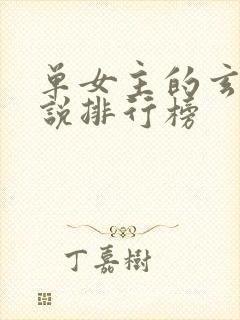 单女主的玄
說排行榜
丁嘉樹